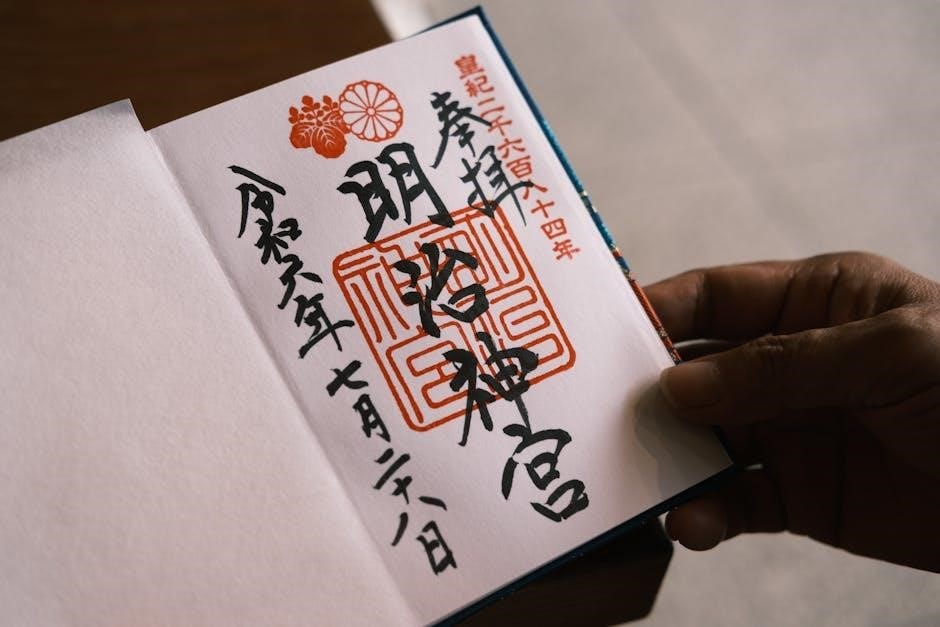 皇紀二千六百八十四年
奉拝
明治神宮
令和六年七月二十八日